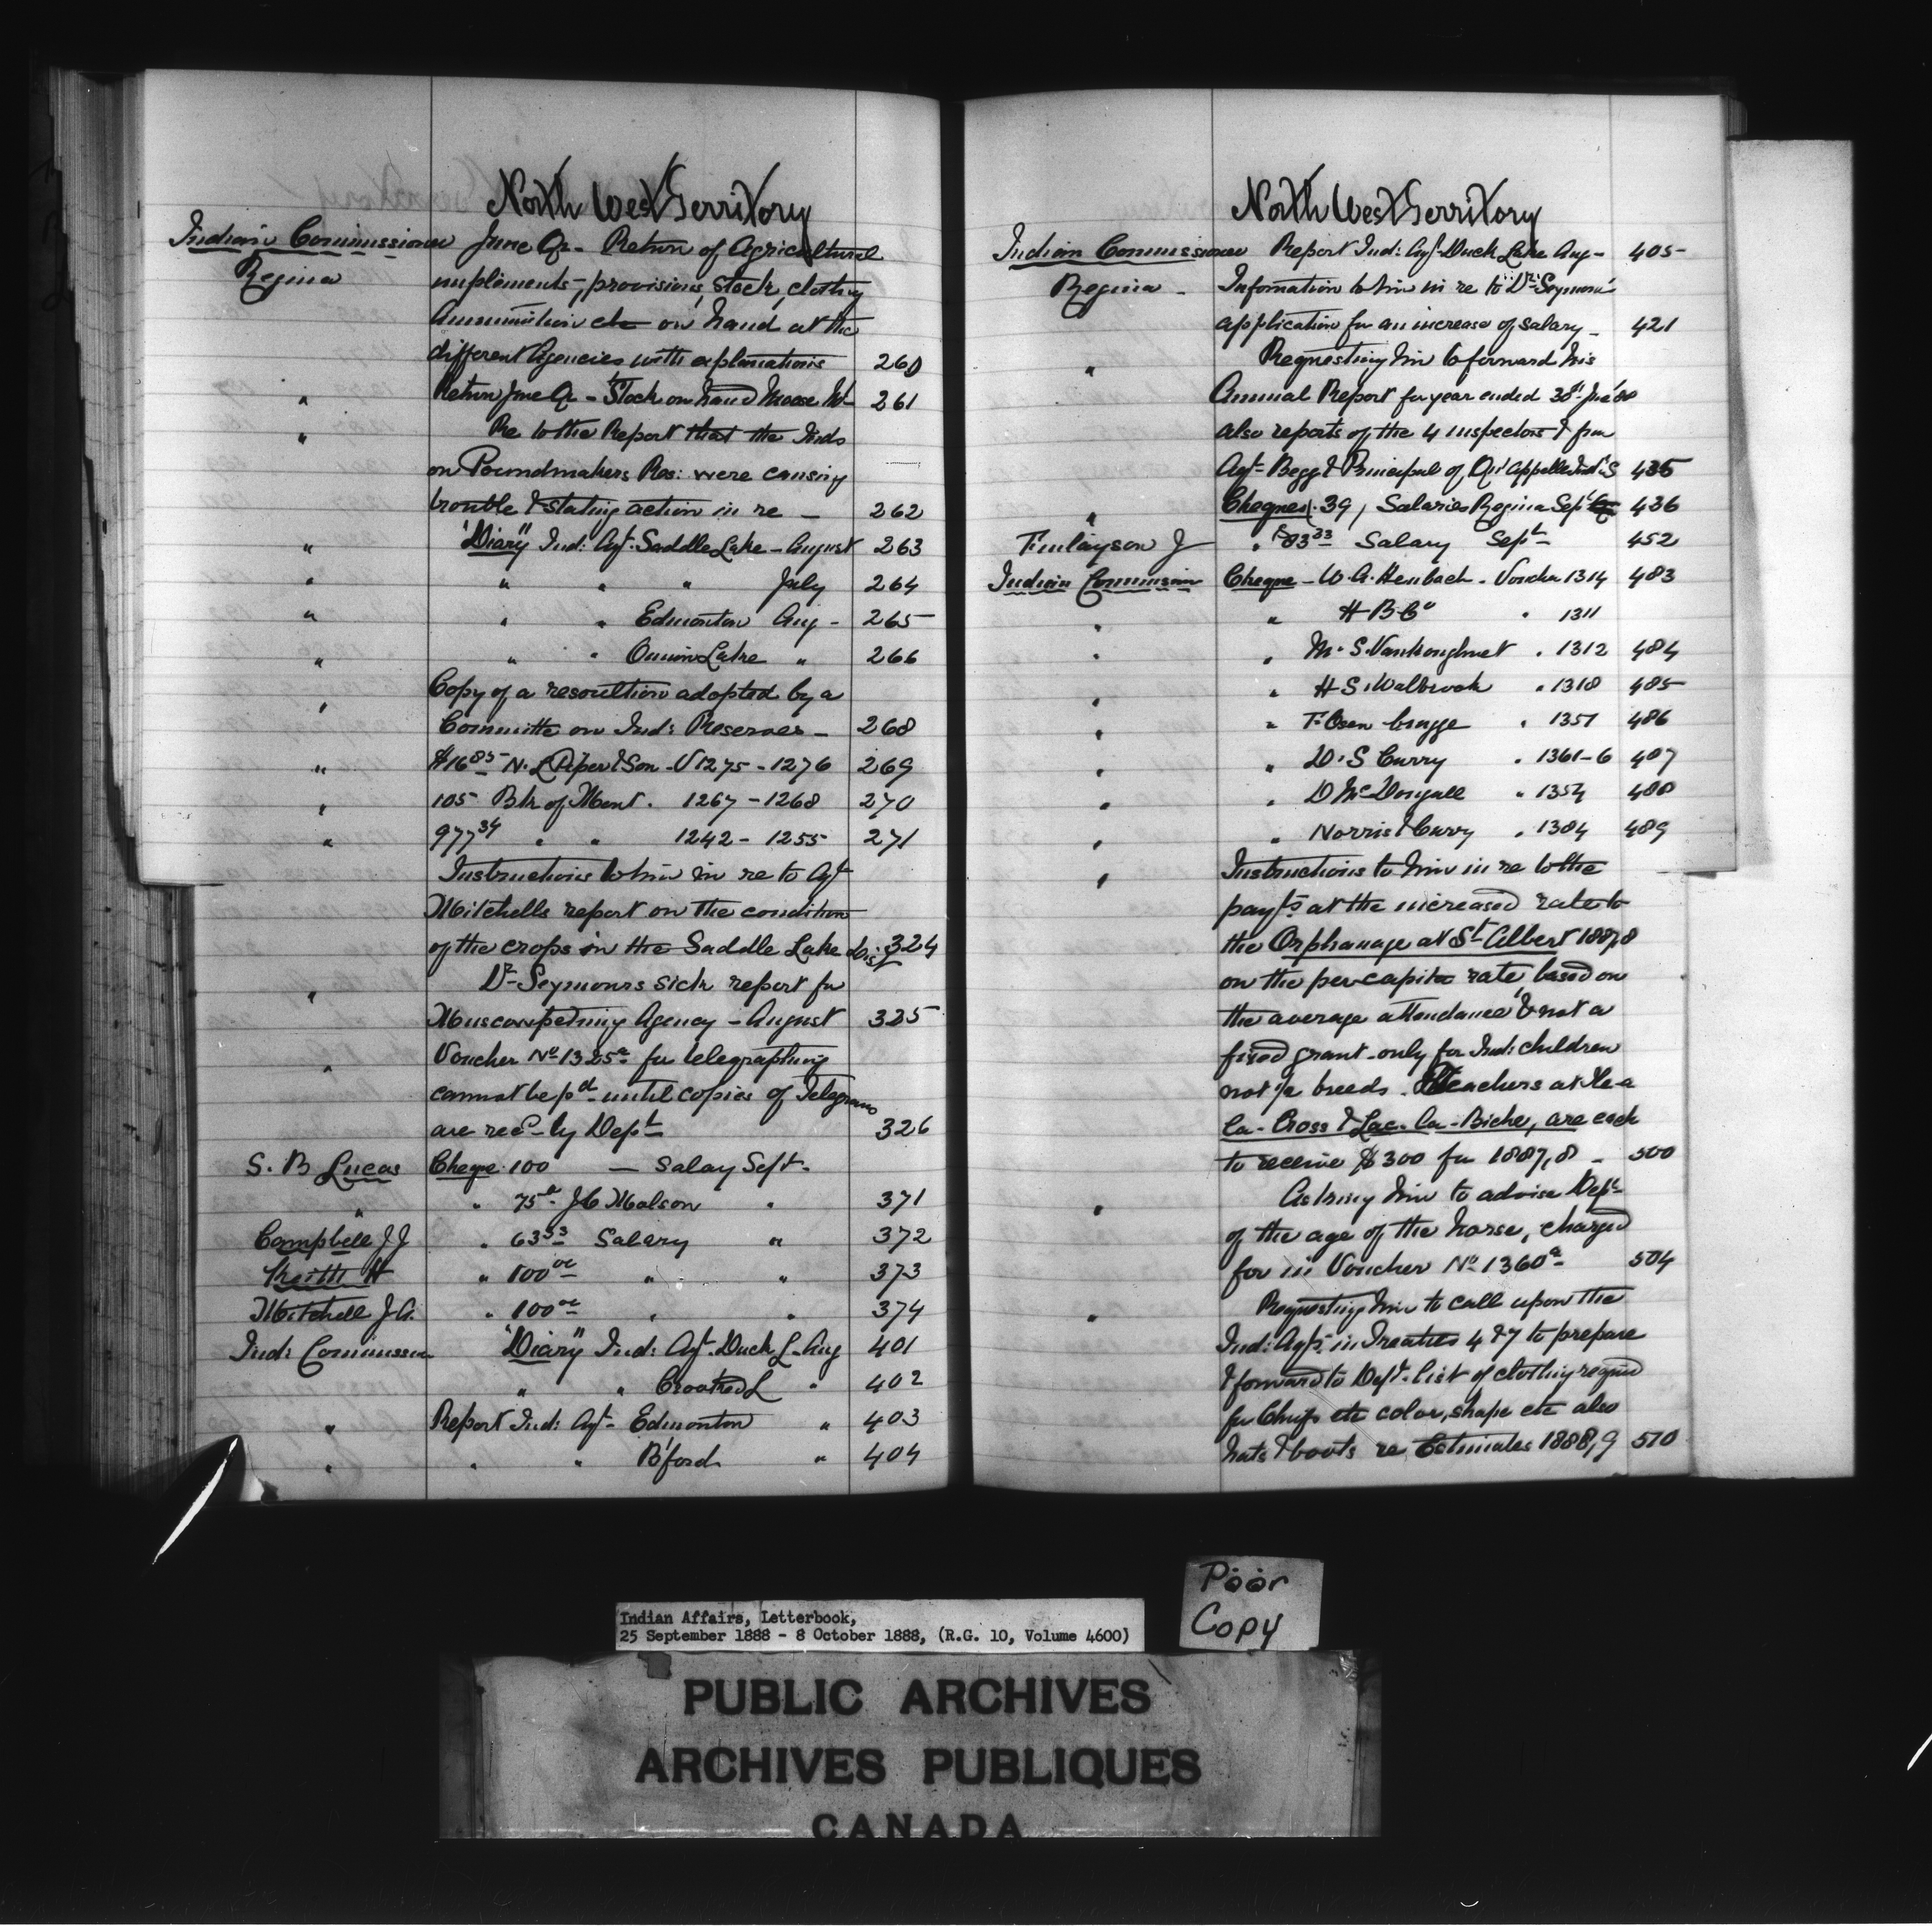 North West Territory
Indian Commissioner June Qr - Return of Agricultural
Regina implements, provisions, Stock, clothing
Ammunition etc on hand at the
different Agencies with explanations 260
" Return June Qr - Stock on hand Moose Mt 261
" Re to the Report that the Inds
on Poundmakers Res: were causing
trouble & stating action in re - 262
" "Diary" Ind: Agt. Saddle Lake - August 263
" " " " July 264
" " " Edmonton Aug - 265
" " " Onion Lake " 266
" Copy of a resoultion adopted by a
Committe on Ind: Reserves - 268
" $16 85 N. L. Piper & Son - V 1275 - 1276 269
" 105 Bk of Mont. 1267 - 1268 270
" 977 34 " " 1242 - 1255 271
Instructions to him in re to Agt
Mitchells report on the condition
of the crops in the Saddle Lake dist 324
" Dr Seymours sick report for
Muscowpetung Agency - August 325
" Voucher No 1325a for telegraphing
cannot be pd until copies of Telegrams
are recd by Dept 326
S. B Lucas Cheque 100 — Salay Sept.
" " 75 J C Malson " 371
Campbell J J " 63 33 Salary " 372
Keith H " 100 00 " " 373
Mitchell J A. " 100 00 " " 374
Ind: Commissn "Diary" Ind: Agt. Duck L. Aug 401
" " Crooked L " 402
" Report Ind: Agt - Edmonton " 403
" " " B'ford " 404
North West Territory
Indian Commissioner Report Ind: Agt Duck Lake Aug - 405
Regina - Infomation to him in re to Dr Seymours
application for an increase of salary - 421
" Requesting him to forward his
Annual Report for year ended 30th June 88
also reports of the 4 inspectors & from
Agt Begg & Principal of Qu'Appelle Ind: S 435
" Cheques 39, Salaries Regina Sept 436
Finlayson J " 83 33 Salary Sept 452
Indian Commission Cheque - W. A. Heubach - Voucher 1314 483
" " H B Co " 1311
" " M. S. Vankoughnet " 1312 484
" " H S. Walbrook " 1318 485
" " 1351 486
" " D. S Curry " 1361-6 487
" " D McDougall " 1354 488
" " Norris & Curry " 1384 489
" Instructions to him in re to the
payts at the increased rate to
the Orphanage at St Albert 1887,8
on the per-capita rate, based on
the average attendance & not a
fixed grant - only for Ind: children
not ½ breeds. Teachers at Ile-a
la-Cross & Lac-la-Biche, are each
to receive $300 for 1887,8 - 500
" Asking him to advise Dept
of the age of the horse, charged
for in Voucher No 1360a 504
" Requesting him to call upon the
Ind: Agts in Treaties 4 & 7 to prepare
& forward to Dept. list of clothing requid
for Chiefs etc color, shape etc also
hats & boots re Estimates 1888,9 510
Poor
Copy
Indian Affairs, Letterbook,
25 September 1888 - 8 October 1888, (R.G. 10, Volume 4600)
PUBLIC ARCHIVES
ARCHIVES PUBLIQUES
CANADA